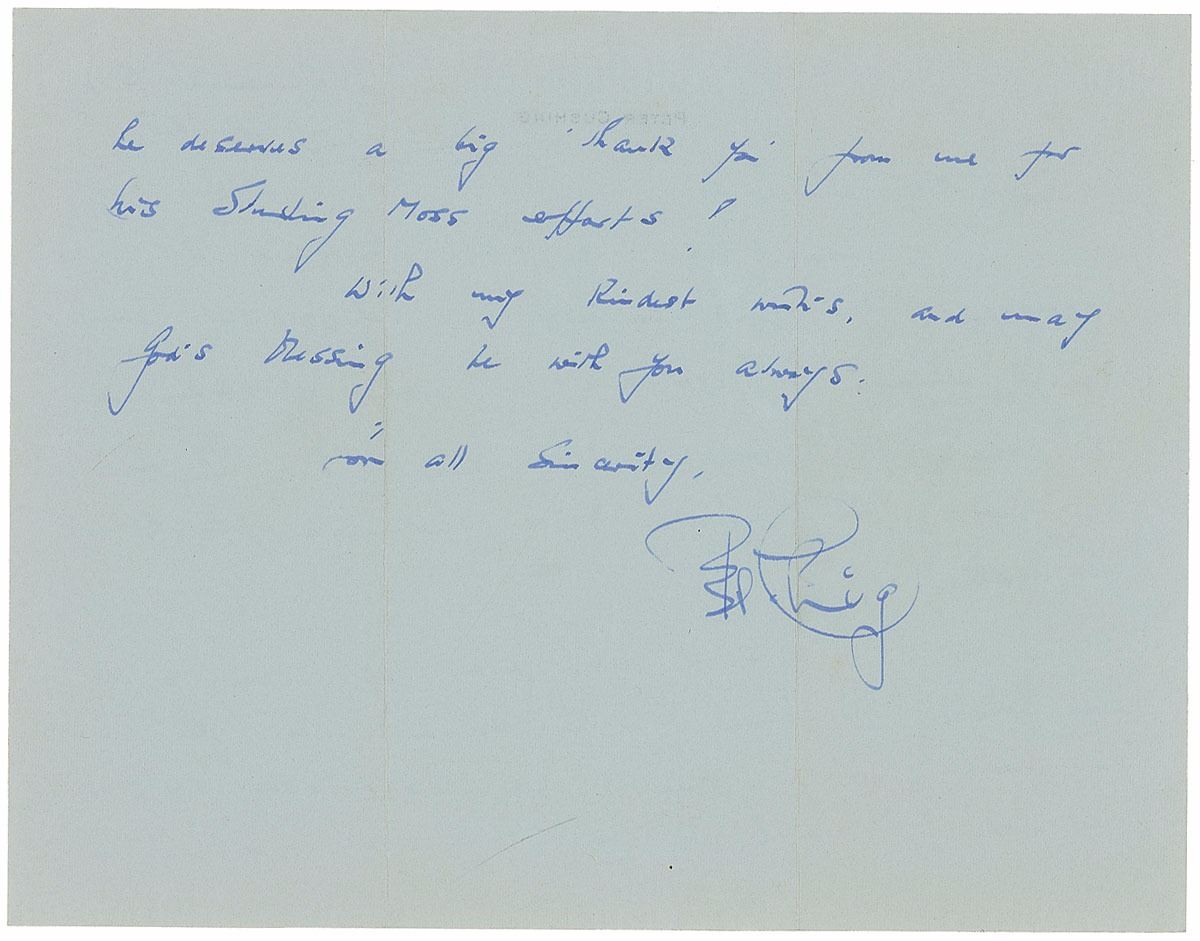 PETER CUSHING
he deserves a big 'thank you' from me for
his Sterling Moss efforts!
With my kindest wishes, and may
God's Blessing be with you always.
in all Sincerity,
Peter Cushing